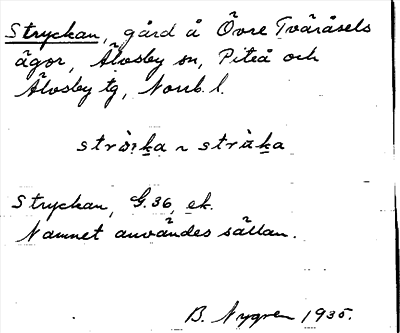 Stryckan, gård å Övre Tväråsels
ägor, Älvsby sn, Piteå och
Älvsby tg, Norrb. l.
Stryckan, G. 36, ek.
Namnet användes sällan.
B. Nygren 1935.